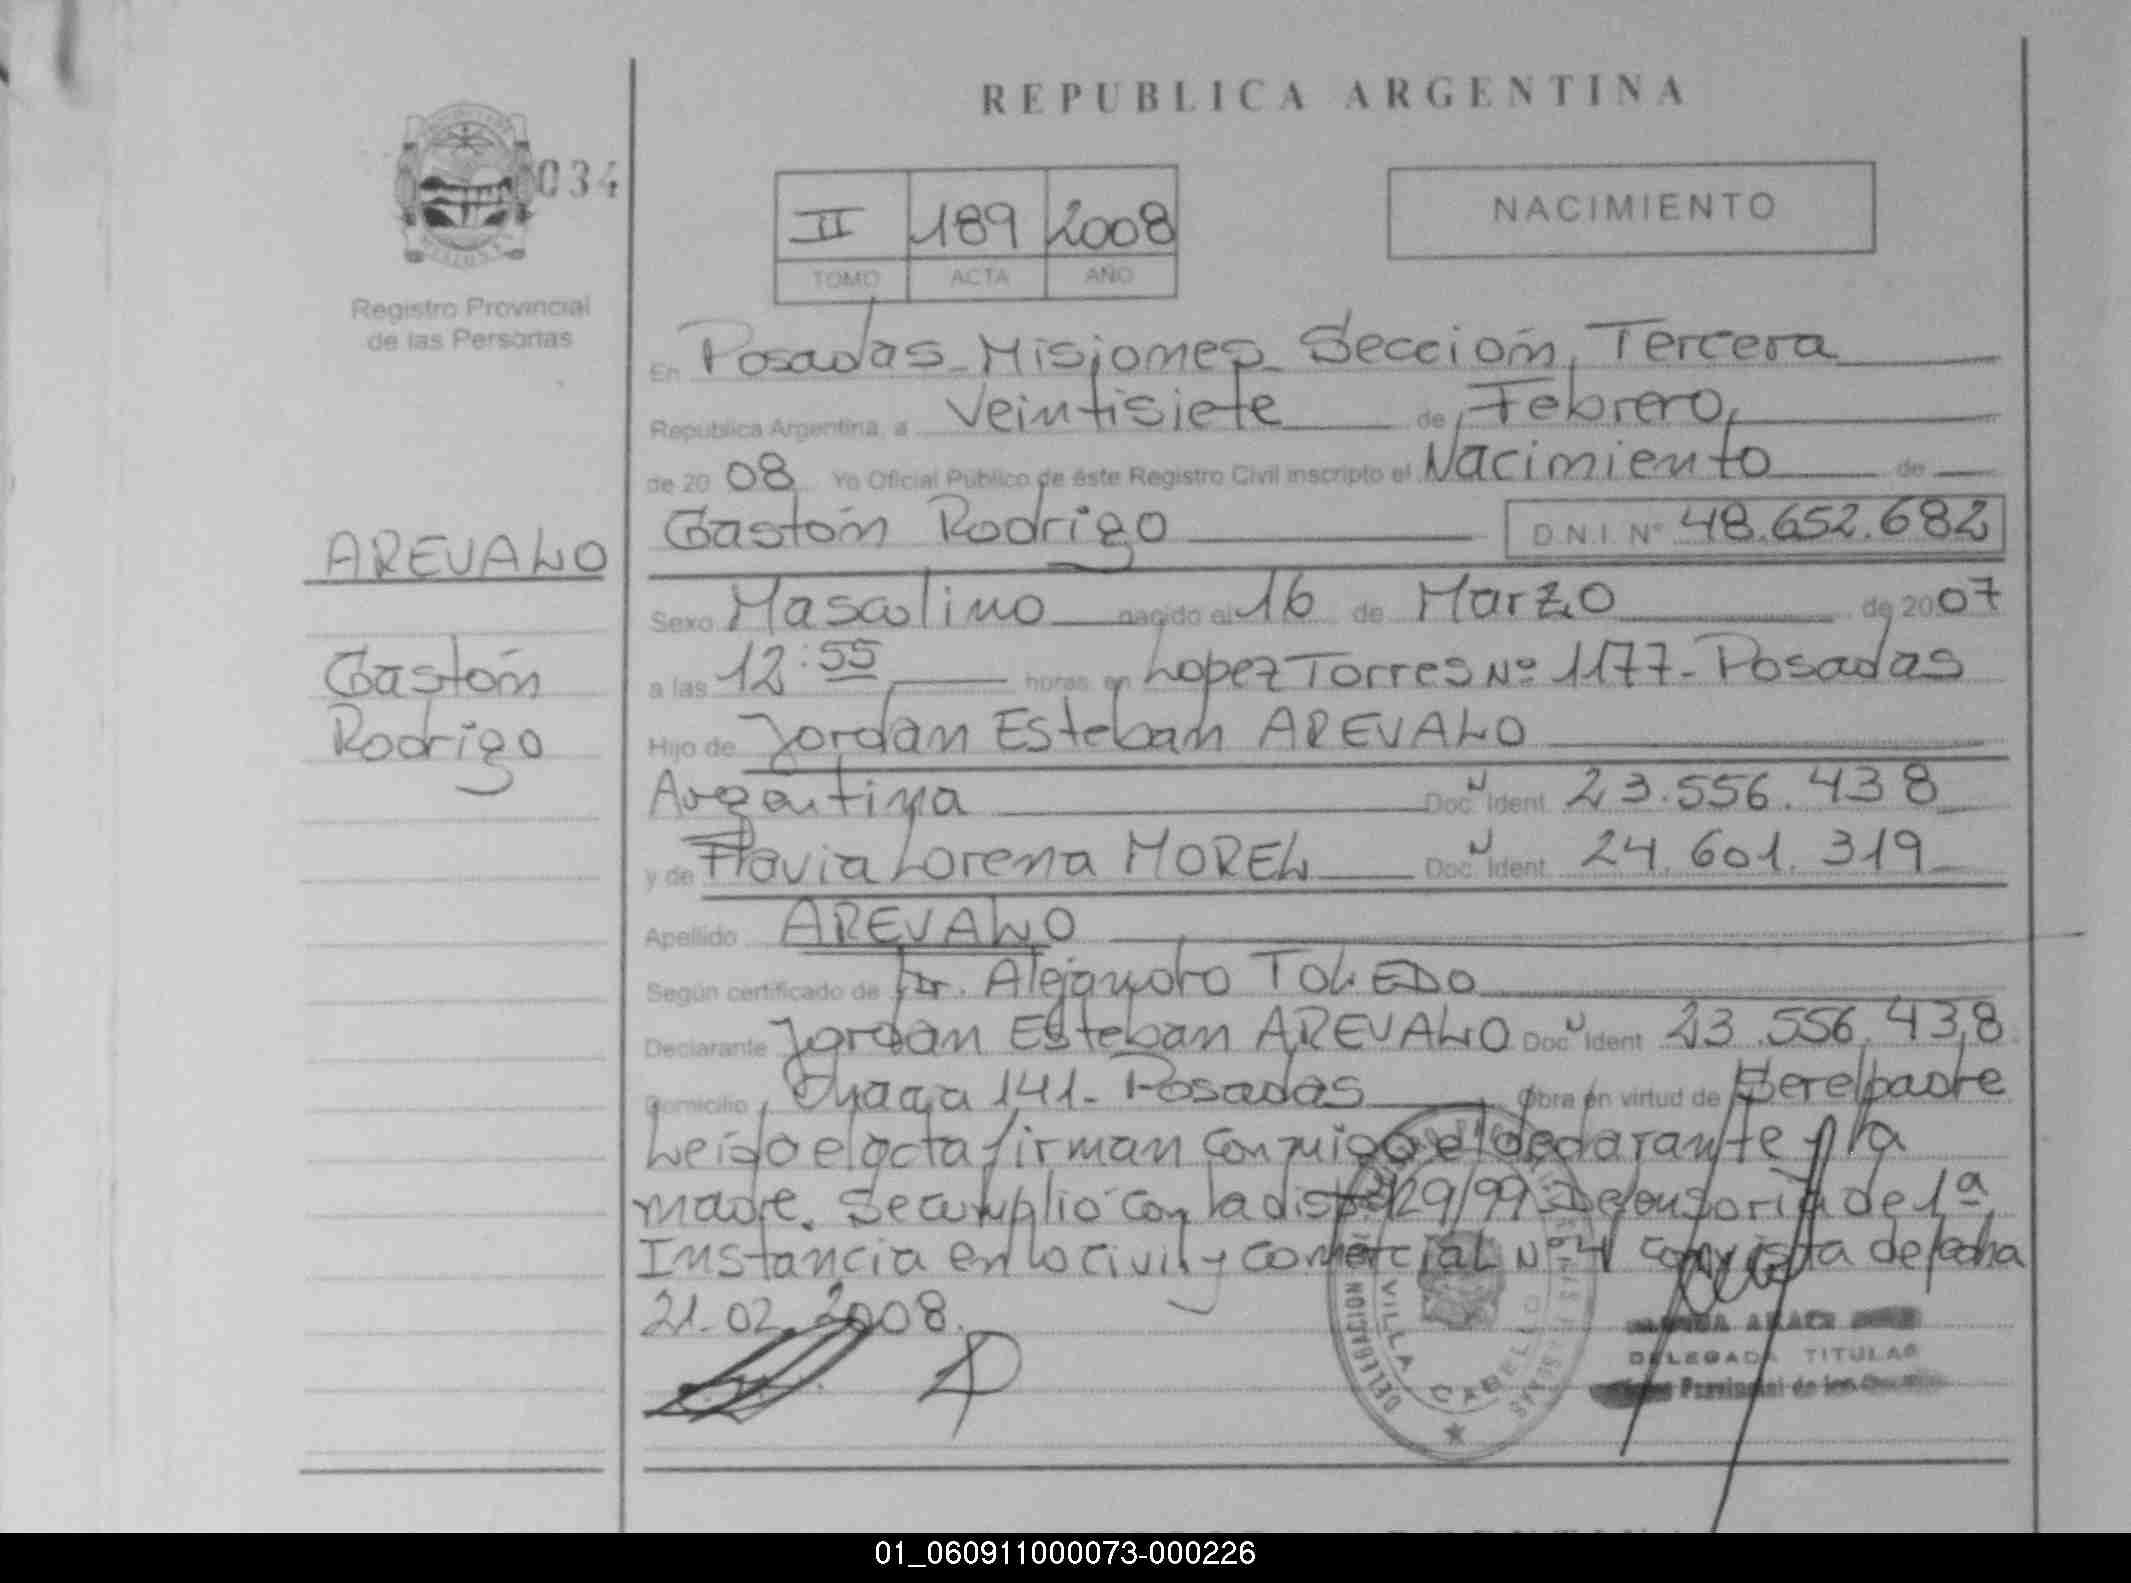 REPUBLICA ARGENTINA
034
II 189 2008
TOMO ACTA AÑO
NACIMIENTO
Registro Provincial
de las Personas
En Posadas - Misiones - Sección Tercera
Republica Argentina, a Veintisiete de Febrero,
de 20 08 Yo Oficial Publico de éste Registro Civil inscripto el Nacimiento de
Gastón Rodrigo D.N.I. Nº 48.652.682
AREVALO
Gastón
Rodrigo
Sexo Masculino nacido el 16 de Marzo de 2007
a las 12:55 horas en Lopez Torres Nº 1177 - Posadas
Hijo de Jordán Esteban AREVALO
Argentina Doc. Ident. 23.556.438
y de Flavia Lorena MOREL Doc. Ident. 24.601.319
Apellido AREVALO
Según certificado de Dr. Alejandro TOLEDO
Declarante Jordán Esteban AREVALO Doc. Ident 23.556.438
Domicilio 141 - Posadas Obra en virtud de Ser el padre
Leído el acta firman conmigo el declarante y la
madre. Se cumplió con la disp. 029/99 Defensoría de 1ª
Instancia en lo Civil y Comercial Nº 4 con vista de fecha
21.02.2008.
DELEGACION VILLA CABELLO
DELEGADA TITULAR
Provincial de las
01_060911000073-000226